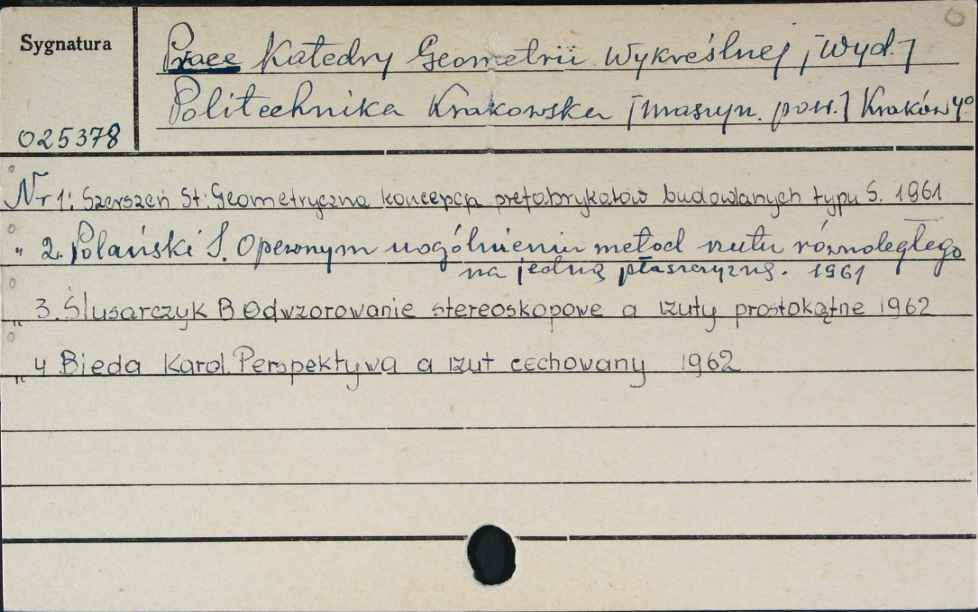 Sygnatura
025378
Prace Katedry Geometrii Wykreślnej [Wyd.]
Politechnika Krakowska [maszyn. pow.] Kraków 4°
Nr 1: Szerszeń St: Geometryczna koncepcja prefabrykatów budowlanych typu S. 1961
" 2. Polański S. O pewnym uogólnieniu metod rzutu równoległego
na jedną płaszczyznę. 1961
" 3. Ślusarczyk B Odwzorowanie stereoskopowe a rzuty prostokątne 1962
" 4 Bieda Karol. Perspektywa a rzut cechowany 1962